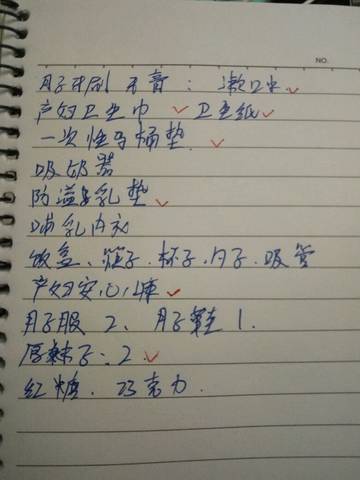 NO.
月子牙刷 牙膏：漱口水 ✓
产妇卫生巾 ✓ 卫生纸 ✓
一次性马桶垫 ✓
吸奶器
防溢乳垫 ✓
哺乳内衣
饭盒、筷子、杯子、勺子、吸管
产妇安心裤 ✓
月子服 2、月子鞋 1.
厚袜子：2 ✓
红糖、巧克力.